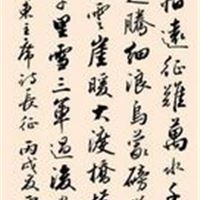 怕遠征難萬水千
迤騰細浪烏蒙磅
雲崖暖大渡橋
里雪三軍過後
東主席詩長征丙戌夏